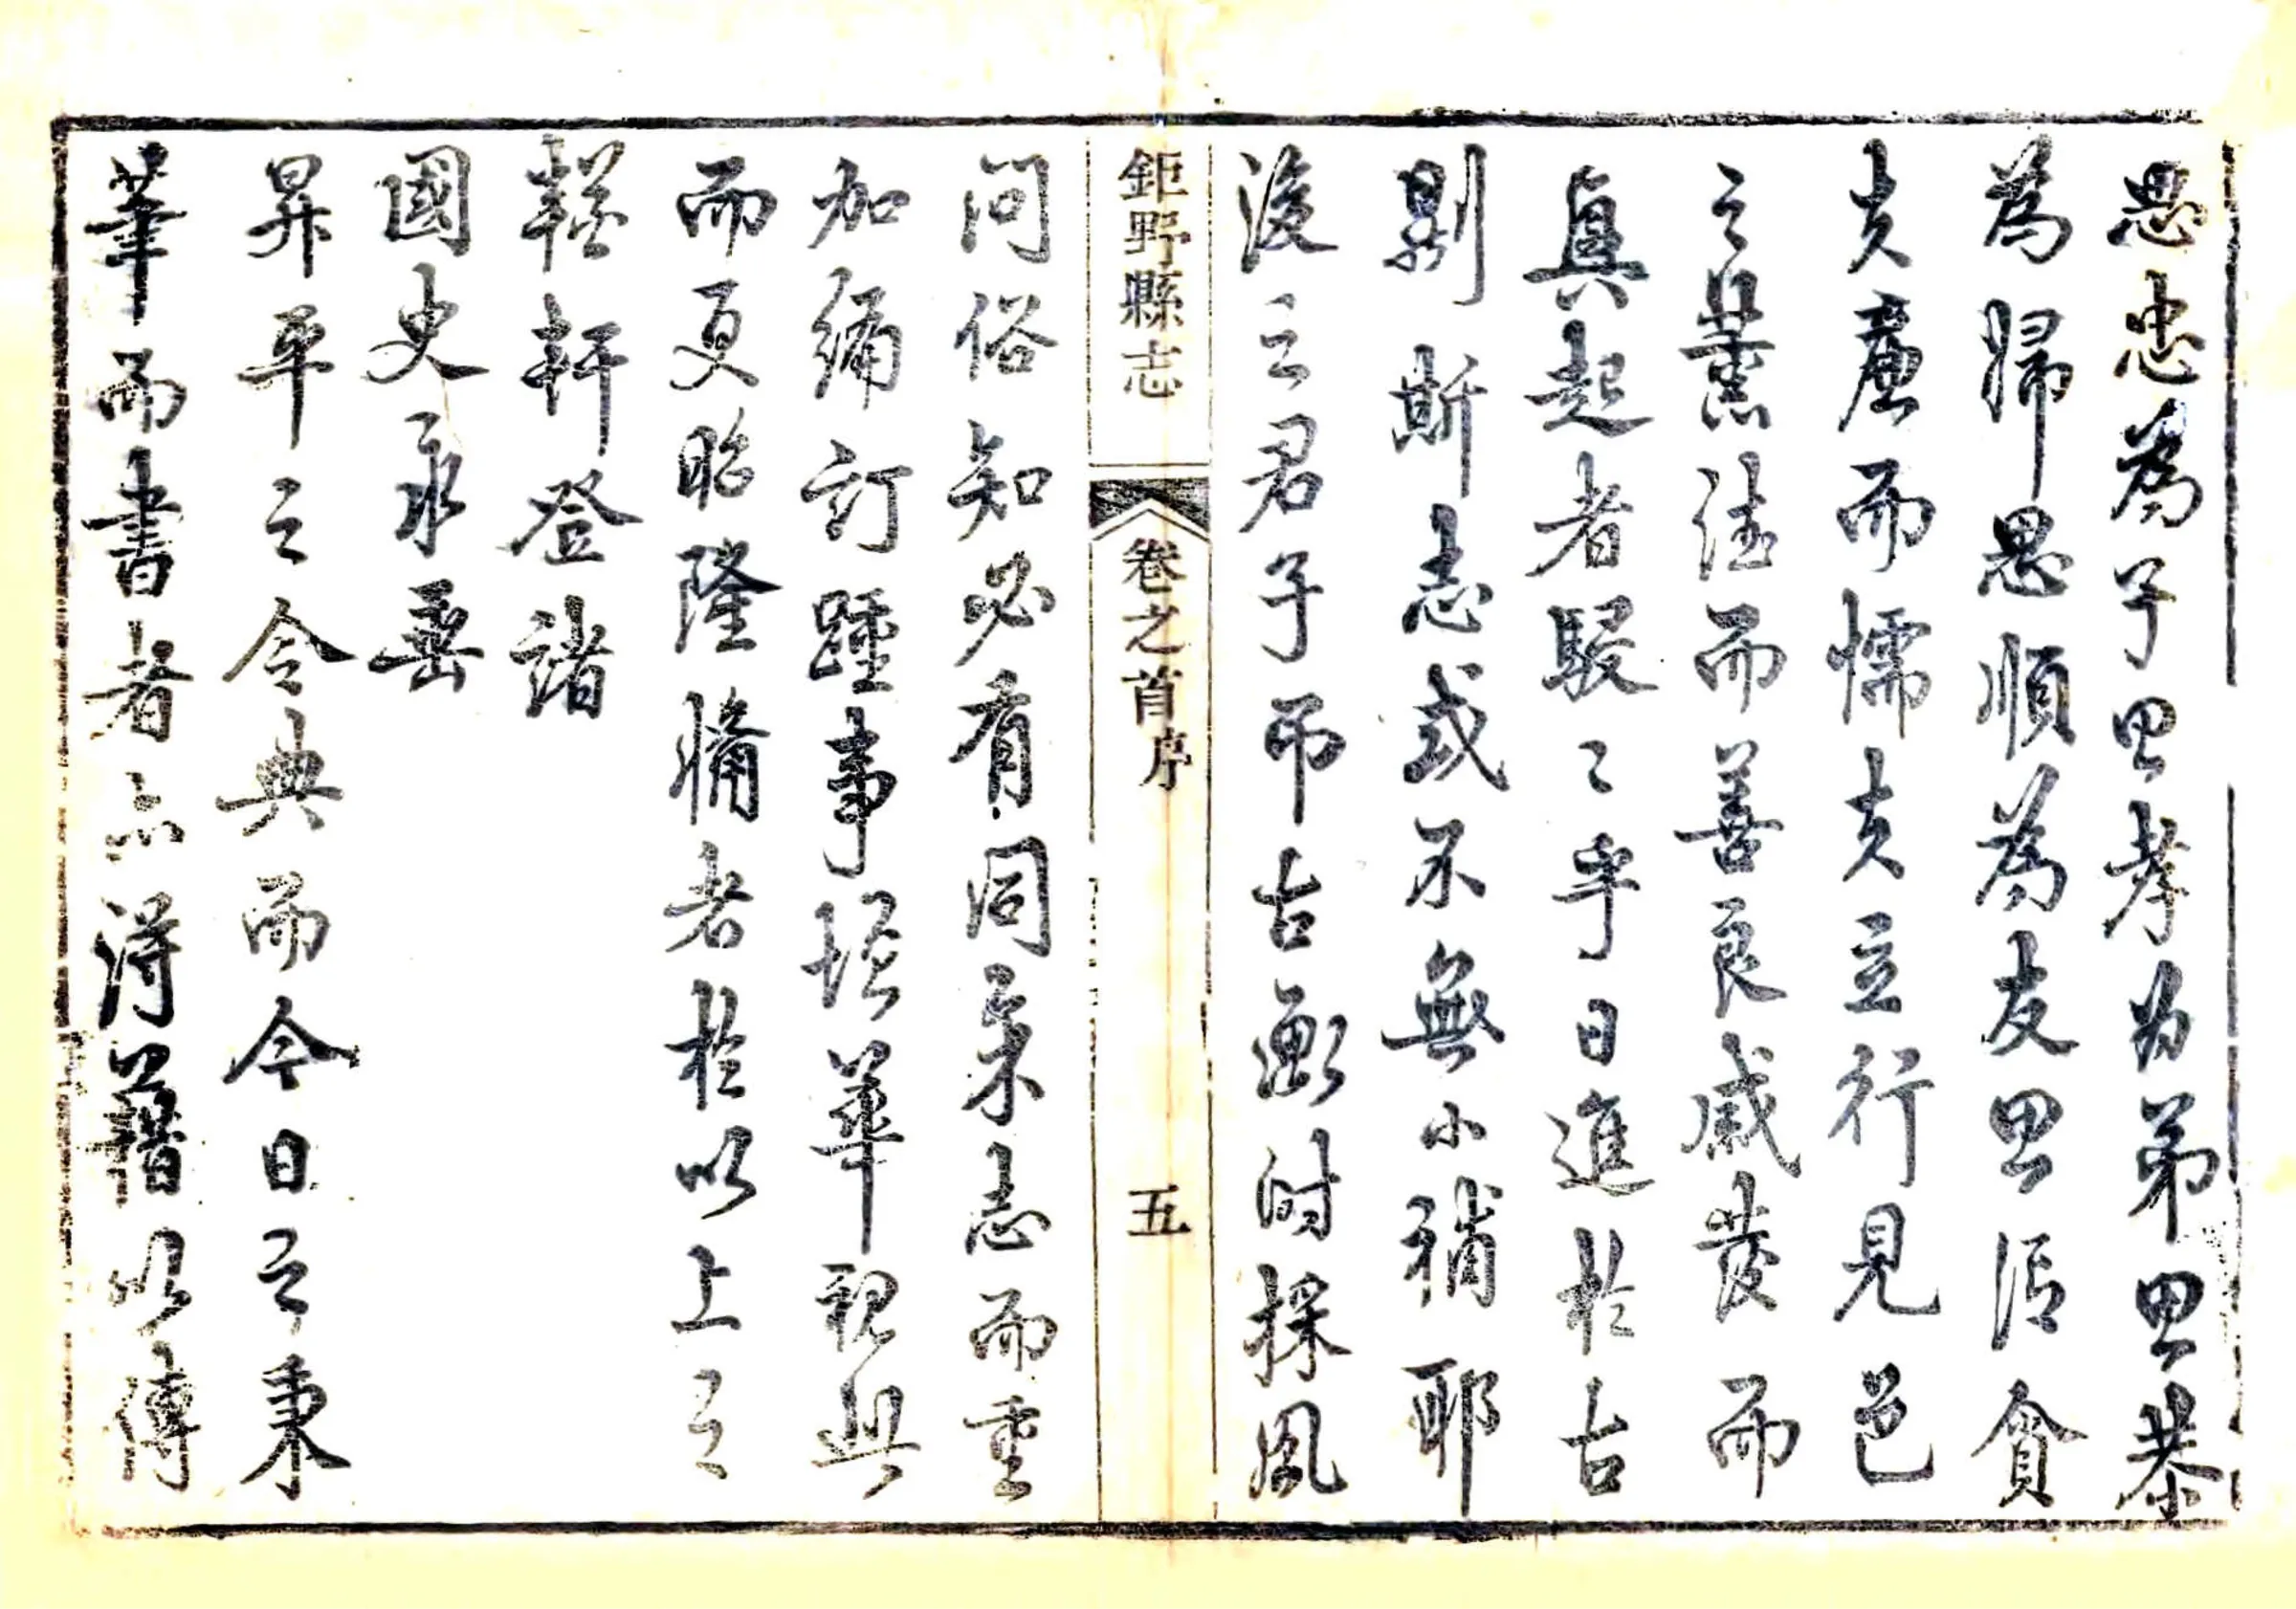 思忠為子思孝為弟思恭
為婦思順為友思信貪
夫廉而懦夫立行見邑
之薰法而善良感發而
真起者駸々乎日進於古
則斯志或不無小補耶
後之君子而古衡時採風
鉅野縣志
卷之首序
五
問俗知必有同余志而重
加編訂踵事增華視與
而更昭隆備者於以上之
輶軒登諸
國史永垂
昇平之令典而今日之秉
筆而書者亦得藉以傳